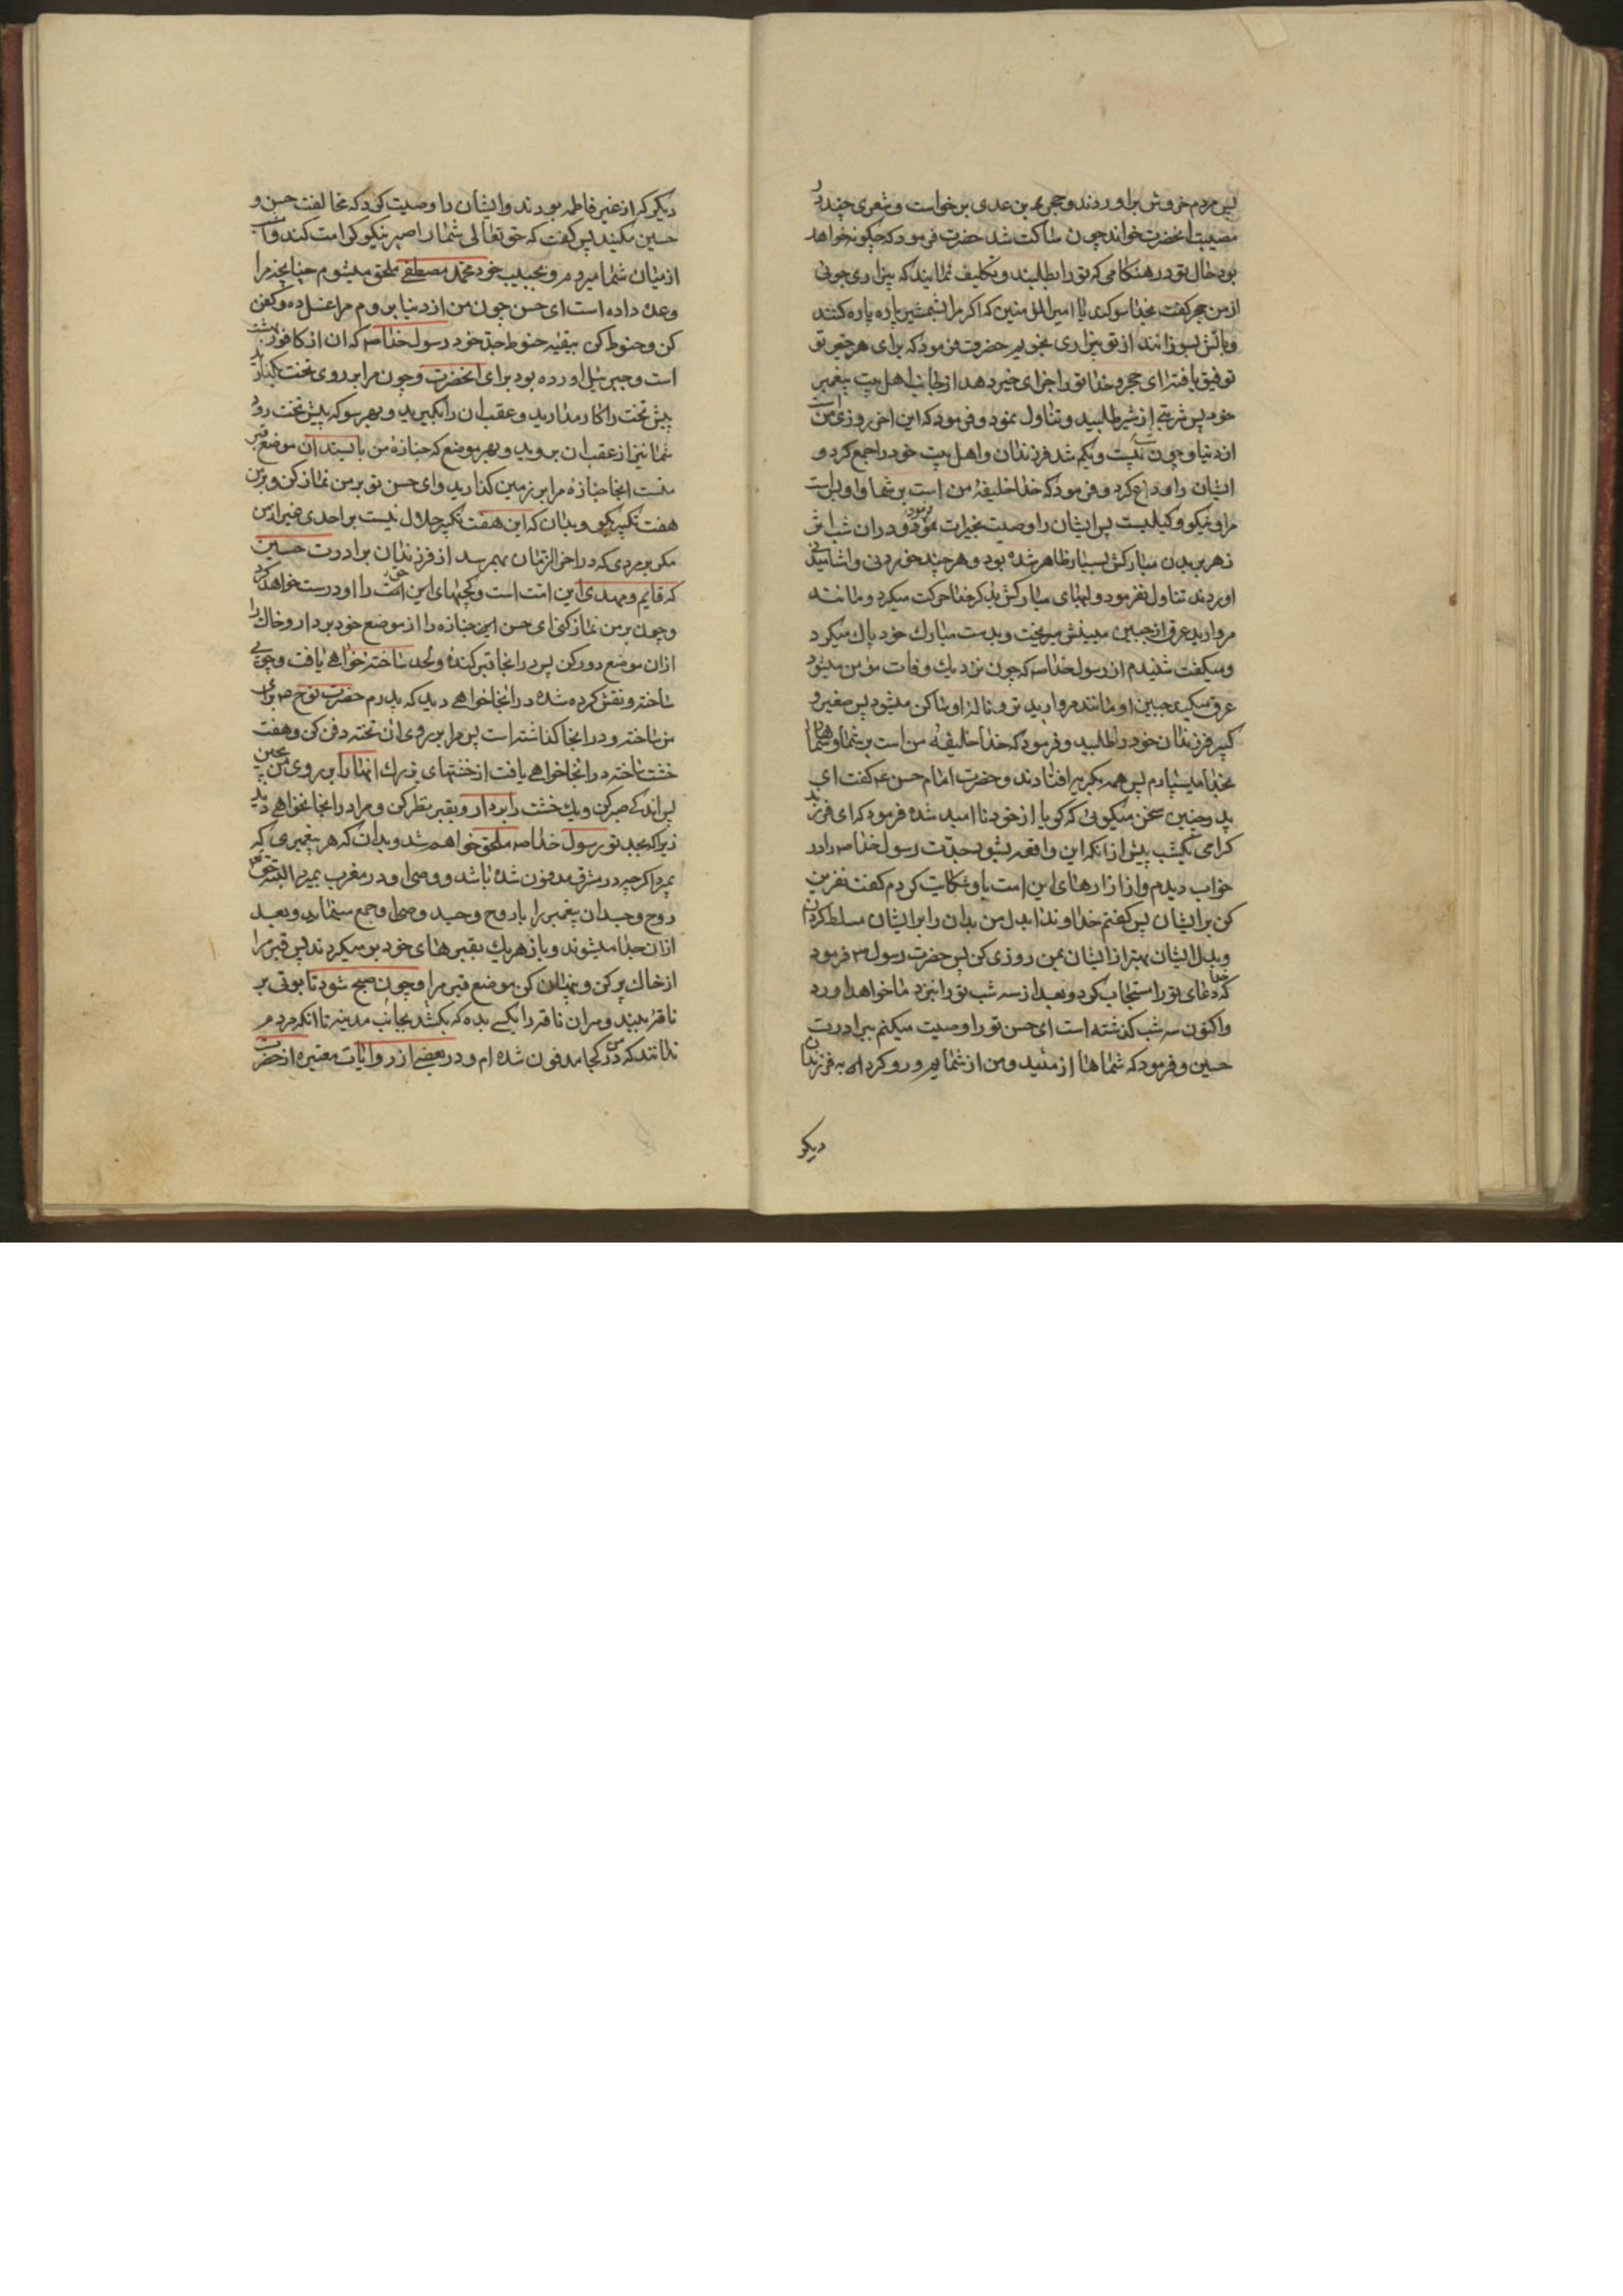 پس مردم خروش براوردند و حجر بن عدی برخواست و شعری چند در
مصیبت انحضرت خواند چون ساکت شد حضرت فرمود که چکونه خواهد
بود حال تو در هنکامی که تو را بطلبند و تکلیف نمایند که بیزاری جوئی
از من حجر کفت بخدا سوکند یا امیرالمؤمنین که اکر مرا بشمشیر پاره پاره کنند
و باتش بسوزانند از تو بیزاری نجویم حضرت فرمود که برای هر خیر تو
توفیق یافتۀ ای حجر و خدا تو را جزای خیر دهد از جانب اهل بیت پیغمبر
خود پس شربتی از شیر طلبید و تناول نمود و فرمود که این اخر روزی من است
از دنیا و چون شب بیست و یکم شد فرزندان و اهل بیت خود را جمع کرد و
ایشان را وداع کرد و فرمود که خدا خلیفۀ من است بر شما و او بس است
مرا و نیکو وکیلیست پس ایشان را وصیت بخیرات فرمود و در ان شب اثر
زهر بر بدن مبارکش بسیار ظاهر شده بود و هر چند خوردنی و اشامیدنی
اوردند تناول نفرمود و لبهای مبارکش بذکر خدا حرکت میکرد و مانند
مروارید عرق از جبین مبینش میریخت و بدست مبارک خود پاک میکرد
و میکفت شنیدم از رسول خدا صه که چون نزدیک وفات مؤمن میشود
عرق میکند جبین او مانند مروارید تر و نالۀ او ساکن میشود پس صغیر و
کبیر فرزندان خود را طلبید و فرمود که خدا خلیفۀ من است بر شما و شما را
بخدا میسپارم پس همه بکریه افتادند و حضرت امام حسن ع کفت ای
پدر چنین سخن میکوئی که کویا از خود ناامید شدۀ فرمود که ای فرزند
کرامی یکشب پیش از انکه این واقعه بشود جدت رسول خدا صه را در
خواب دیدم و از ازارهای این امت باو شکایت کردم کفت نفرین
کن بر ایشان پس کفتم خداوندا بدل من بدان را بر ایشان مسلط کردان
و بدل ایشان بهتر از ایشان بمن روزی کن پس حضرت رسول ص فرمود
که خدا دعای تو را مستجاب کرد و بعد از سه شب تو را بنزد ما خواهد اورد
و اکنون سه شب کذشته است ای حسن تو را وصیت میکنم ببرادرت
حسین و فرمود که شماها از منید و من از شمایم و رو کرد به فرزندان
دیکر
دیکر که از غیر فاطمه بودند و ایشان را وصیت کرد که مخالفت حسن و
حسین مکنید پس کفت که حق تعالی شما را صبر نیکو کرامت کند امشب
از میان شما میروم و بحبیب خود محمد مصطفی ملحق میشوم چنانچه مرا
وعده داده است ای حسن چون من از دنیا بروم مرا غسل ده و کفن
کن و حنوط کن ببقیۀ حنوط جد خود رسول خدا صه که ان از کافور بهشت
است و جبرئیل اورده بود برای انحضرت و چون مرا بر روی تخت بکذارید
پیش تخت را کار مدارید و عقب ان را بکیرید و بهر سو که پیش تخت رود
شما نیز از عقب ان بروید و بهر موضع که جنازۀ من بایستد ان موضع قبر
منست انجا جنازۀ مرا بر زمین کذارید و ای حسن تو بر من نماز کن و بر من
هفت تکبیر بکو و بدان که این هفت تکبیر حلال نیست بر احدی غیر از من
مکر بر مردی که در اخر الزمان بهمرسد از فرزندان برادرت حسین
که قایم و مهدی این امت است و کجیهای این امت را او درست خواهد کرد
و چون بر من نماز کنی ای حسن جنازه را از موضع خود بردار و خاک را
از ان موضع دور کن پس در انجا قبر کنده و لحد ساختۀ خواهی یافت و چوبی
ساخته و نقش کرده شده در انجا خواهی دید که پدرم حضرت نوح برای
من ساخته و در انجا کذاشته است پس مرا بر روی ان تخته دفن کن و هفت
خشت ساخته در انجا خواهی یافت از خشتهای بزرک انها را بر روی من بچین
پس اندکی صبر کن و یک خشت را بردار و بقبر نظر کن و مرا در انجا نخواهی دید
زیرا که بجد تو رسول خدا صه ملحق خواهم شد و بدان که هر پیغمبری که
بمیرد اکرچه در مشرق مدفون شده باشد و وصی او در مغرب بمیرد البته حق
روح و جسد ان پیغمبر را با روح و جسد وصی او جمع مینماید و بعد
از ان جدا میشوند و باز هر یک بقبرهای خود برمیکردند پس قبر مرا
از خاک پر کن و پنهان کن موضع قبر مرا و چون صبح شود تابوتی بر
ناقۀ ببند و مهار ان ناقه را بکسی بده که بکشد بجانب مدینه تا انکه مردم
ندانند که من در کجا مدفون شده ام و در بعضی از روایات معتبره از حضرت